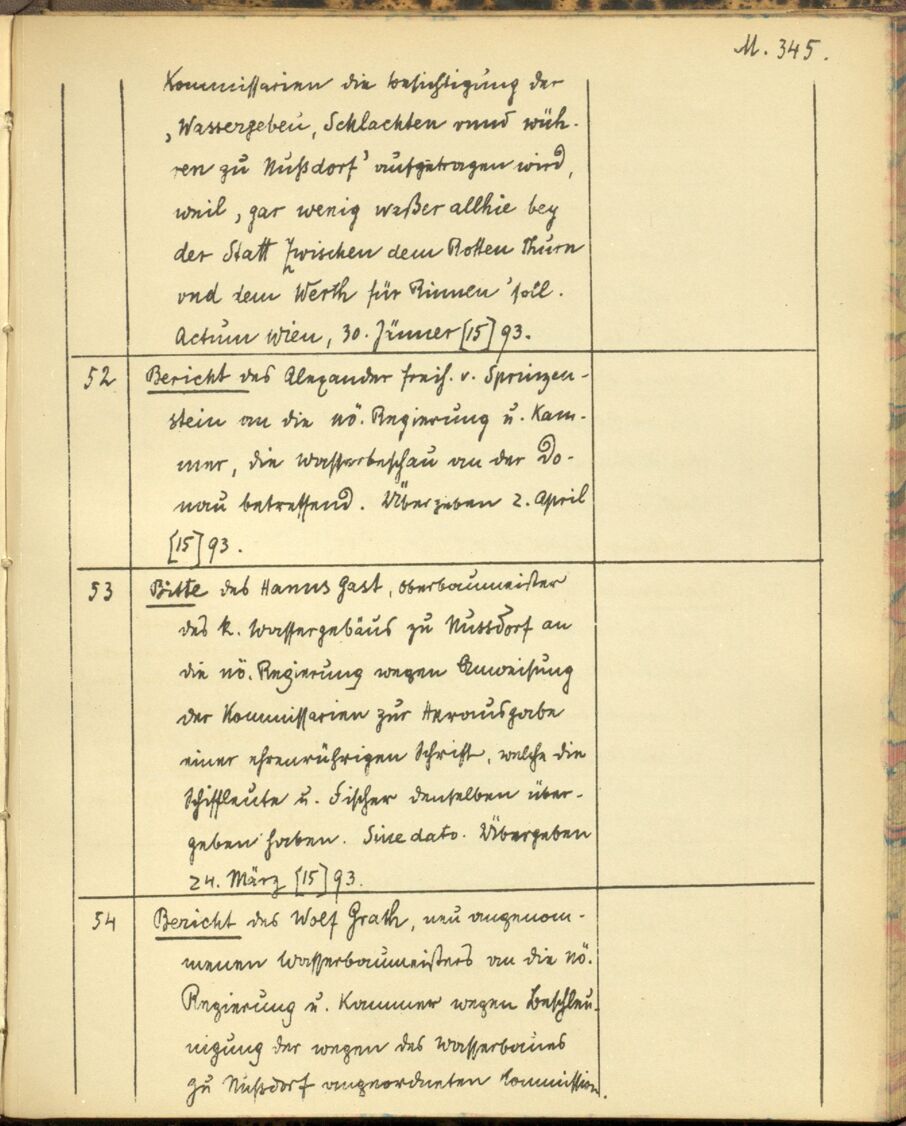 M. 345.
Kommissarien die Besichtigung der
‚Wassergebeu, Schlachten vnnd wüh-
ren zu Nußdorf’ aufgetragen wird,
weil ‚gar wenig waßer allhie bey
der Statt Zwischen dem Rotten Thurn
vnd dem Werth für Rinnen’ soll.
Actum Wien, 30. Jänner [15]93.
52 Bericht des Alexander Freih. v. Sprinzen-
stein an die nö. Regierung u. Kam-
mer, die Wasserbeschau an der Do-
nau betreffend. Übergeben 2. April
[15]93.
53 Bitte des Hanns Gast, Oberbaumeister
des k. Wassergebäus zu Nussdorf an
die nö. Regierung wegen Anweisung
der Kommissarien zur Herausgabe
einer ehrenrührigen Schrift, welche die
Schiffleute u. Fischer denselben über-
geben haben. Sine dato. Übergeben
24. März [15]93.
54 Bericht des Wolf Grath, neu angenom-
menen Wasserbaumeisters an die nö.
Regierung u. Kammer wegen Beschleu-
nigung der wegen des Wasserbaues
zu Nußdorf angeordneten Commission.